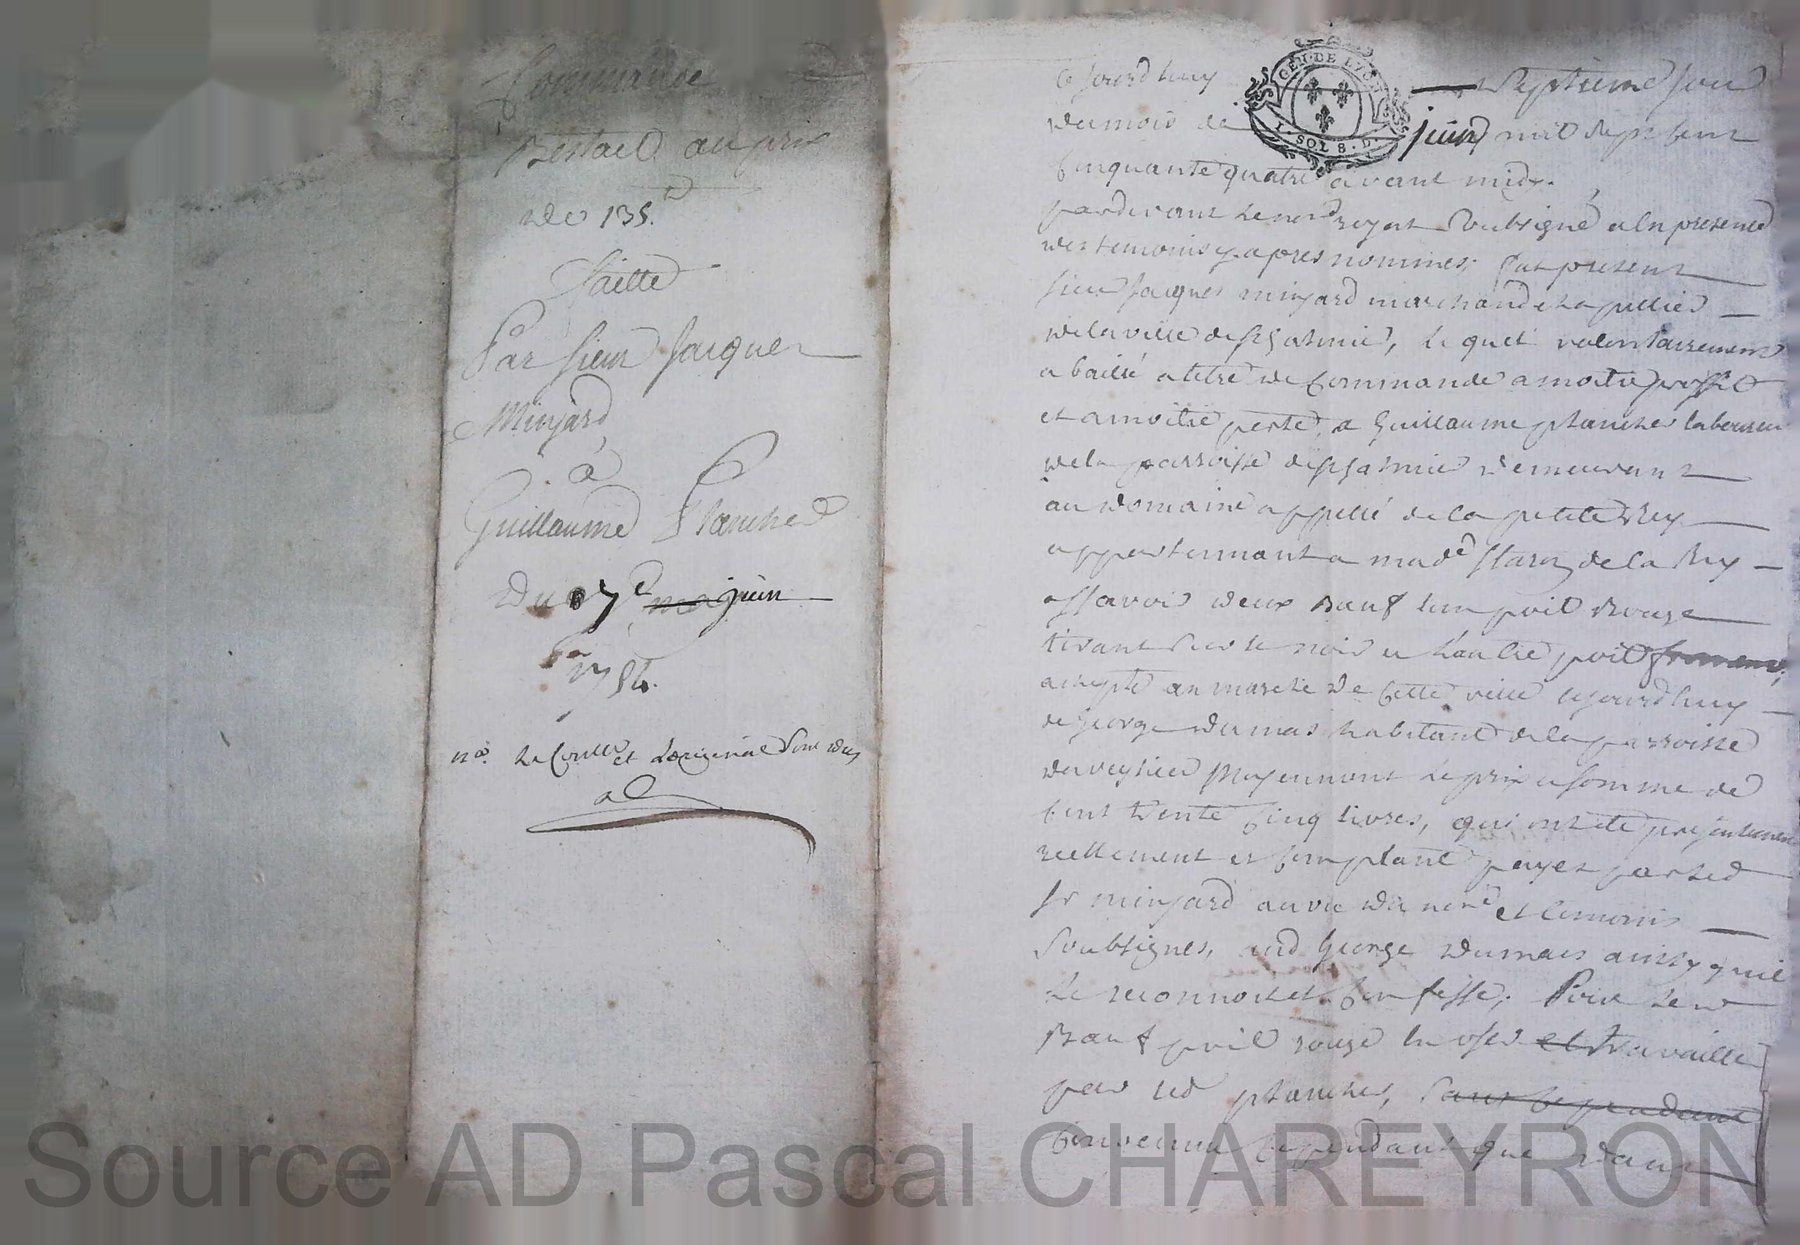 Commande
Bestail au prix
de 135 ᵗᵗ
faitte
Par sieur Jacques
Minjard
à
Guillaume Planchet
du 7e juin
1754.
nᵃ. Le Conlle et Loriginal sont dus
Ce jourd'huy septieme jour
du mois de juin mil sept cent
Cinquante quatre avant midy.
pardevant le nore royal soubsigné en la presence
des temoins cy apres nommés; fut present
sieur Jacques minjard marchand chapellier
de la ville de st galmier, lequel volontairement
a baillé a titre de Commande a moitié proffit
et a moitié perte, a Guillaume planchet laboureur
de la parroisse de st galmier demeurant
au domaine appellé de la petite Rey
appartennant a made staron de la Rey
assavoir deux Bœuf lun poil Rouge
tirant sur le noir et lautre poil froment,
achepté au marché de cette ville cejourdhuy
de George dumas habitant de la parroisse
de veyrieu Moyennant le prix et somme de
Cent trente cinq livres, qui ont été presentement
reellement et comptant payez par led
sr minjard au vu du nore et temoins
soubsignes, aud George dumas ainsy quil
le reconnoit et confesse; Pour led
Bœuf poil rouge et travaillé
par led planchet, sans cependant
Convenu cependant que dans
GEN. DE LYON
1. SOL 8. D.
Source AD Pascal CHAREYRON